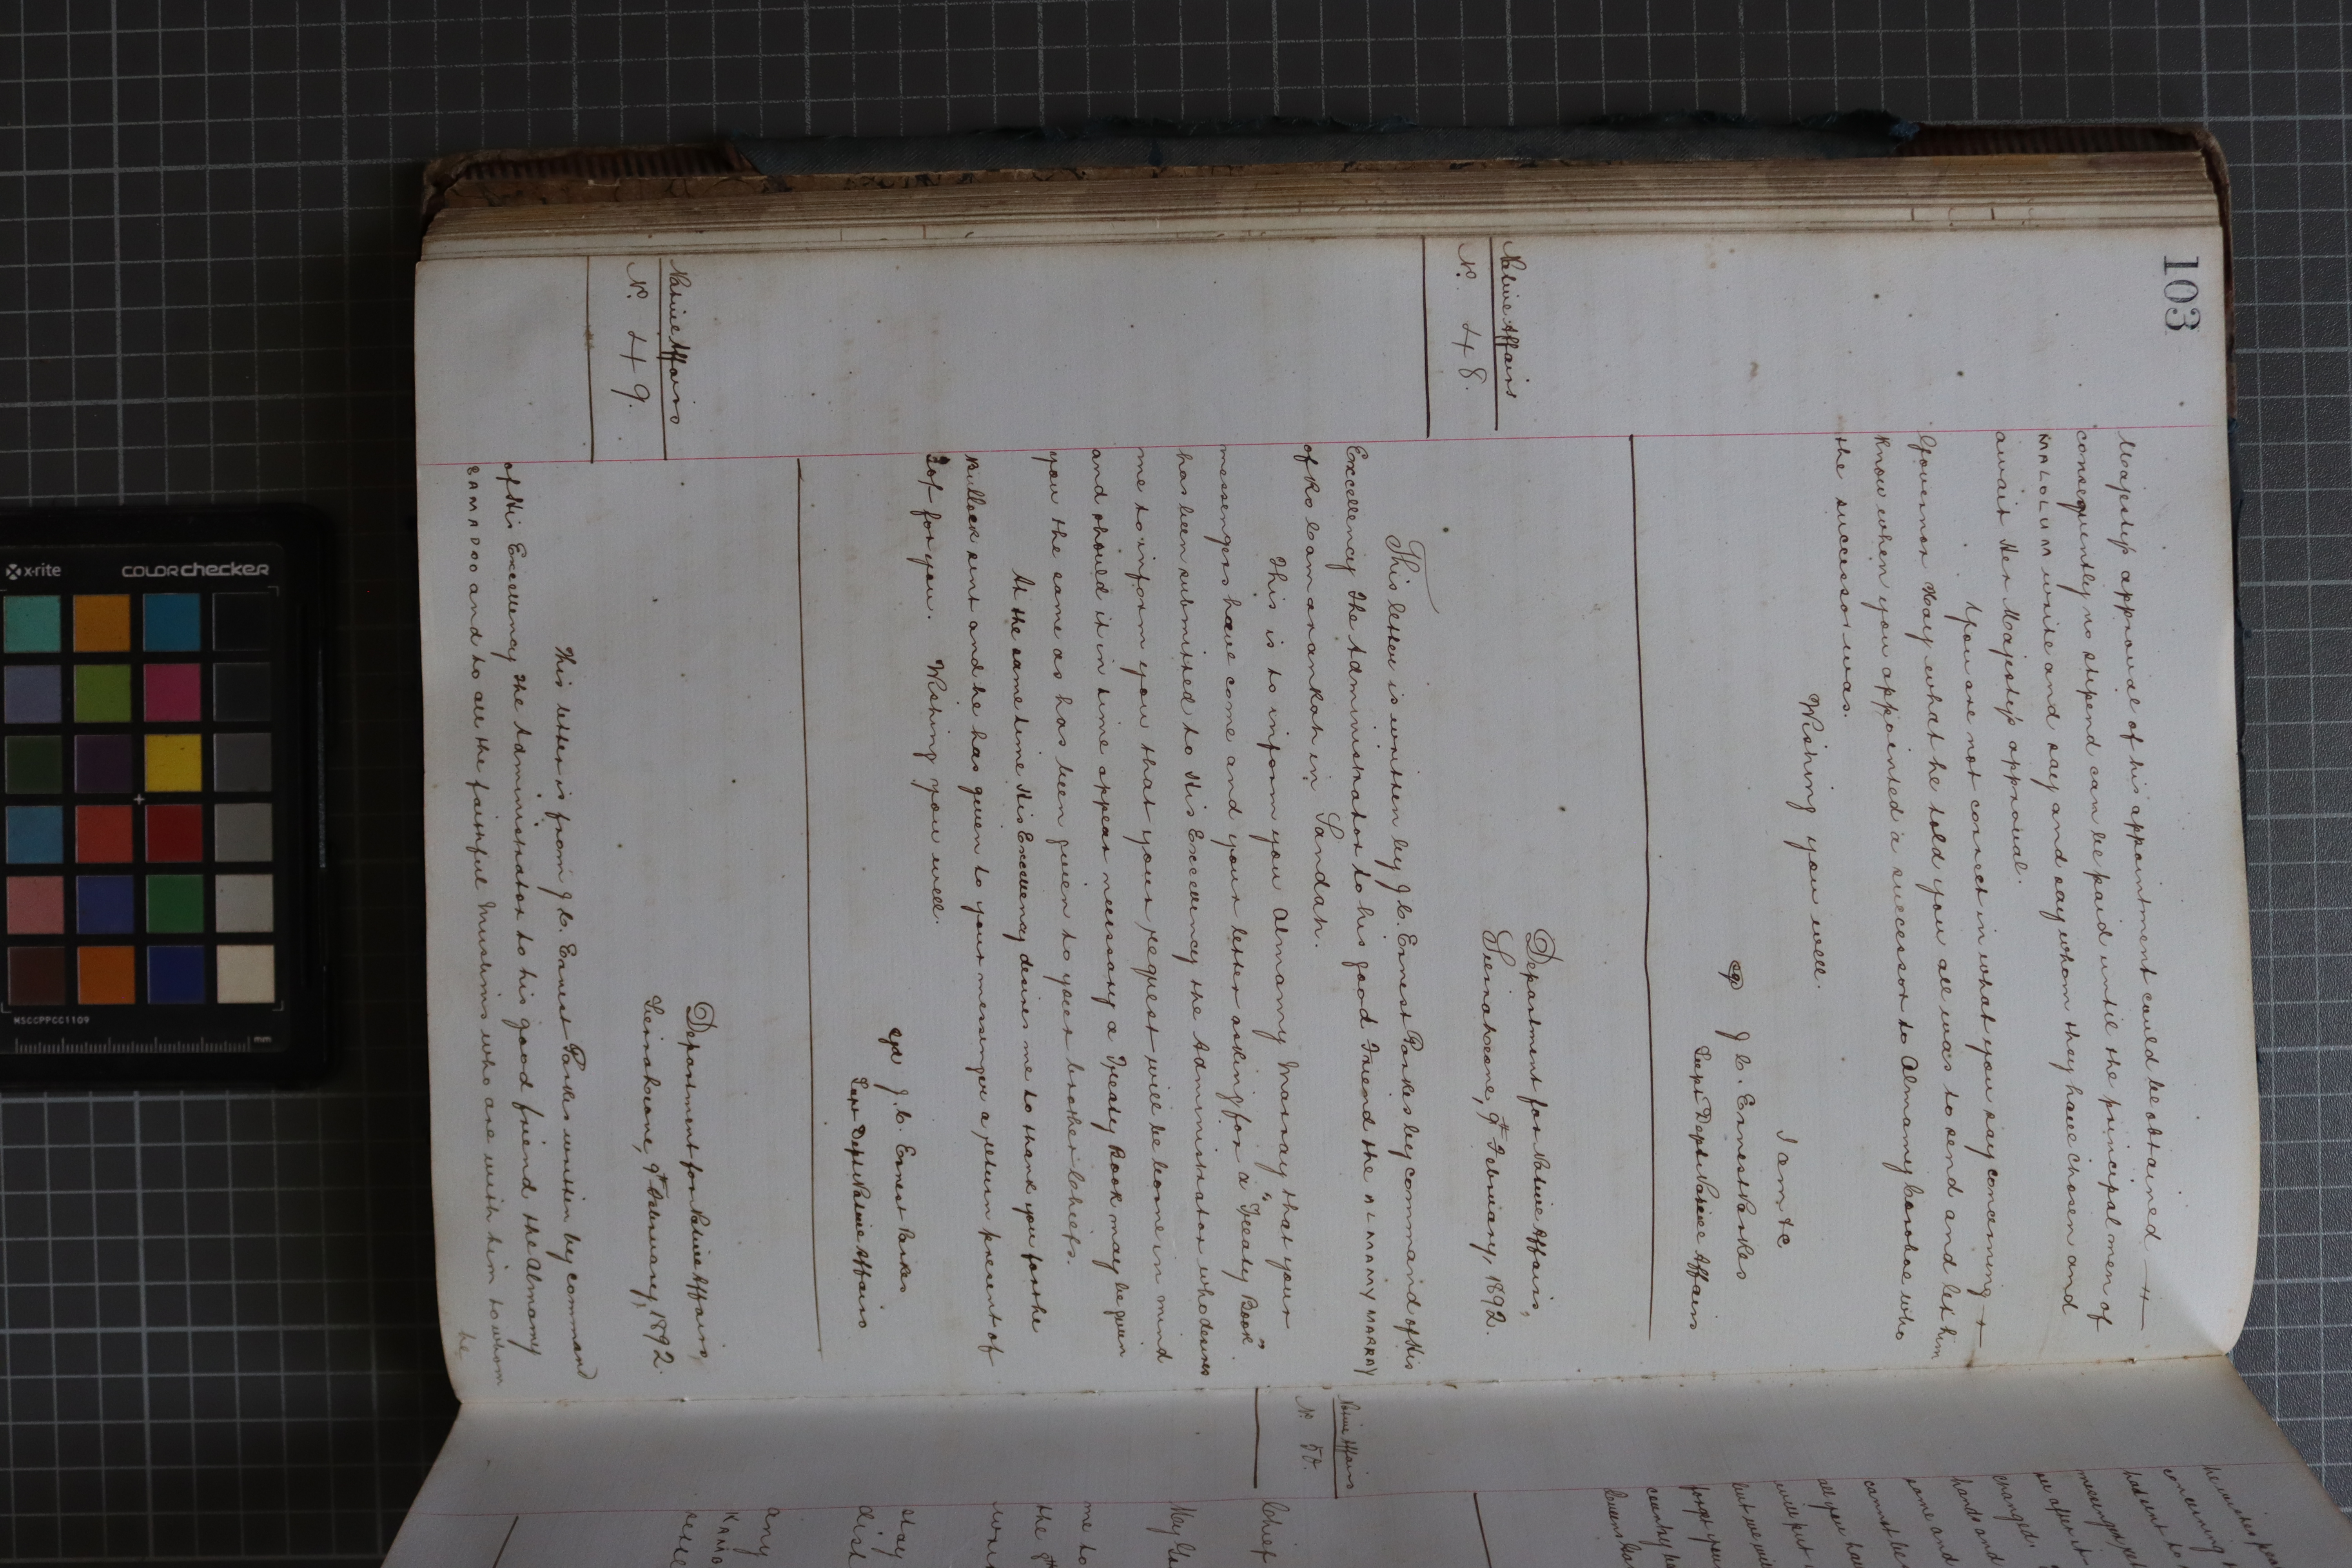 103
Majesty's approval of his appointment could be obtained
consequently no stipend can be paid until the principal men of
MALOLUM write and say and say whom they have chosen and
await Her Majesty's approval.
You are not correct in what you say concerning
Governor Hay what he told you all was to send and let him
know when you appointed a successor to Almamy who
the successor was.
Wishing you well.
I am &c
J. C. Ernest Parkes
Supt Dept Native Affairs
Native Affairs
No. 48.
Department for Native Affairs,
Sierra Leone, 9th February, 1892.
This letter is written by J. C. Ernest Parkes by command of His
Excellency The Administrator to his good friend the ALMAMY MARRAY
of in Sandah.
This is to inform you Almamy Marray that your
messengers have come and your letter asking for a "Treaty Book"
has been submitted to His Excellency the Administrator who desires
me to inform you that your request will be borne in mind
and should it in time appear necessary a Treaty Book may be given
you the same as has been given to your brother Chiefs.
At the same time His Excellency desires me to thank you for the
Bullock sent and he has given to your messenger a return present of
for you. Wishing you well.
J. C. Ernest Parkes
Supt Dept Native Affairs
Native Affairs
No. 49.
Department for Native Affairs,
Sierra Leone, 9th February, 1892.
This letter is from J. C. Ernest Parkes written by command
of His Excellency the Administrator to his good friend the Almamy
SAMADOO and to all the faithful Muslims who are with him to whom
he
Native Affairs
No. 50.
he wishes
concerning
had sent to
messenger
changed.
hands and
some and
cannot be
all you have
will put
but we
forget your
country
Queen's
Chief
May
me to
the 8th
won
stay
dist
any
KAMA